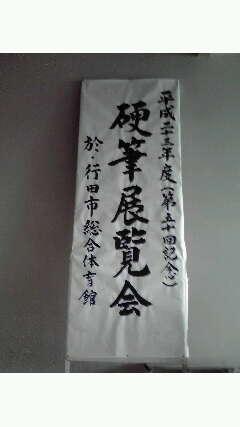 平成二十三年度(第五十回記念)
硬筆展覧会
於・行田市総合体育館